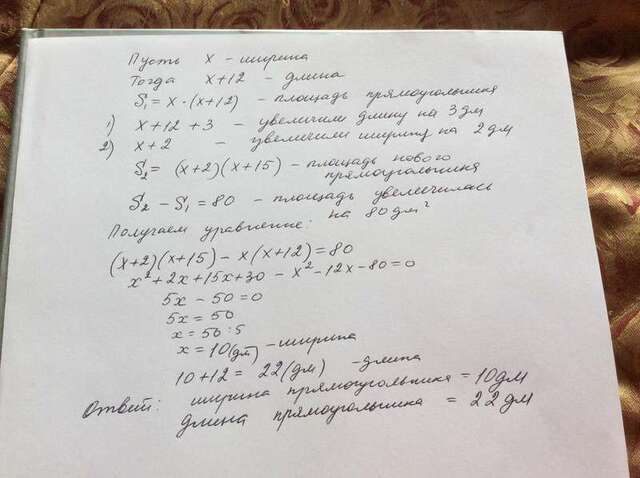 Пусть x - ширина
Тогда x+12 - длина
S₁ = x·(x+12) - площадь прямоугольника
1) x+12+3 - увеличили длину на 3 дм
2) x+2 - увеличили ширину на 2 дм
S₂ = (x+2)(x+15) - площадь нового прямоугольника
S₂ - S₁ = 80 - площадь увеличилась на 80 дм²
Получаем уравнение:
(x+2)(x+15) - x(x+12) = 80
x²+2x+15x+30 - x²-12x-80=0
5x - 50 = 0
5x = 50
x = 50:5
x = 10(дм) - ширина
10+12 = 22(дм) - длина
Ответ: ширина прямоугольника = 10 дм
длина прямоугольника = 22 дм